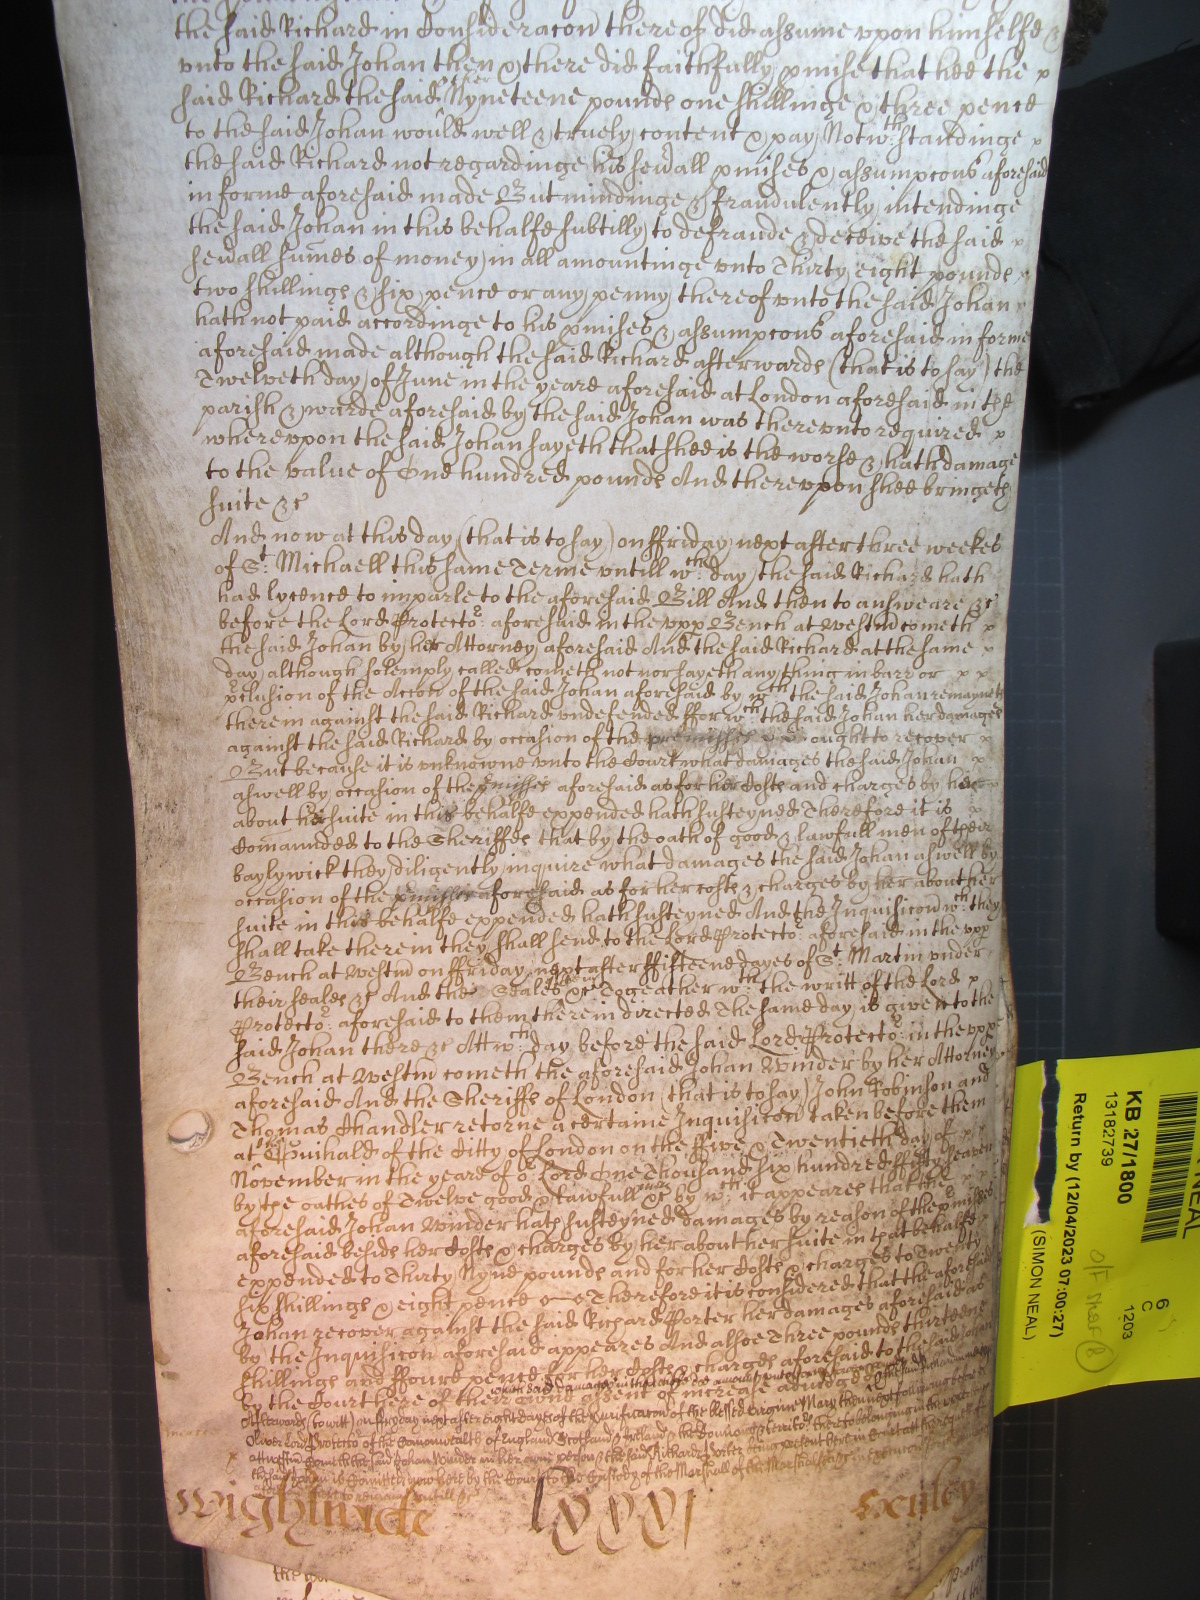 the said Richard in Consideracon there of did assume vpon himselfe &
vnto the said Johan then & there did faithfully pmise that hee the
said Richard the said other Nyneteene pounds one shillinge & three pence
to the said Johan would well & truely content & pay Notwth:standinge
the said Richard not regardinge his sewall pmises & assumpcons aforesaid
in forme aforesaid made But mindinge & fraudulently intendinge
the said Johan in this behalfe subtilly to defraude & deceive the said
sewall sumes of money in all amountinge vnto Thirty eight pounds
two shillings & six pence or any penny thereof vnto the said Johan
hath not paid accordinge to his pmises & assumpcons aforesaid in forme
aforesaid made although the said Richard afterwards (that is to say) the
Twelveth day of June in the yeare aforesaid at London aforesaid in the
parish & warde aforesaid by the said Johan was therevnto required
wherevpon the said Johan sayeth that shee is the worse & hath damage
to the value of One hundred pounds And therevpon shee bringeth
suite &c
And now at this day (that is to say) on ffriday next after three weekes
of St: Michaell this same Terme vntill wch: day the said Richard hath
had lycence to imparle to the aforesaid Bill And then to answeare &c
before the Lord Protector: aforesaid in the vpp Bench at Westm cometh
the said Johan by her Attorney aforesaid And the said Richard at the same
day although solemply called cometh not nor sayeth any thing in barr or
pclusion of the Accon of the said Johan aforesaid by wch: the said Johan remayneth
therein against the said Richard vndefended ffor wch: the said Johan her damages
against the said Richard by occasion of the premisses ought to recover
But because it is vnknowne vnto the Court what damages the said Johan
aswell by occasion of the pmisses aforesaid as for her Costs and charges by her
about her suite in this behalfe expended hath susteyned Therefore it is
Comaunded to the Sheriffes that by the oath of good & lawfull men of their
baylywick they diligently inquire what damages the said Johan aswell by
occasion of the pmisses aforesaid as for her costs & charges by her about her
suite in this behalfe expended hath susteyned And the Inquisicon wch: they
shall take therein they shall send to the Lord Protector: aforesaid in the vpp
Bench at Westm on ffriday next after ffifteene dayes of St: Martin vnder
their seales &c And the Seales &c Togeather wth: the writt of the Lord
Protector: aforesaid to them therein directed The same day is given to the
said Johan there &c Att wch: day before the said Lord Protector: in the vpp
Bench at Westm cometh the aforesaid Johan Winder by her Attorney
aforesaid And the Sheriffs of London (that is to say) John Robinson and
Thomas Chandler retorne a certaine Inquisicon taken before them
at the Guihald of the Citty of London on the ffive & Twentieth day of
November in the yeare of or Lord One Thousand six hundred ffifty seaven
by the oathes of Twelve good & lawfull men &c by wch: it appeares that the
aforesaid Johan Winder hath susteyned damages by reason of the pmisses
aforesaid beside her Costs & charges by her about her suite in that behalfe
expended to Thirty Nyne pounds and for her Costs & charges to Twenty
six shillings & eight pence Therefore it is considered that the aforesaid
Johan recover against the said Richard Porter her damages aforesaid as
by the Inquisicon aforesaid appeares And alsoe Three pounds thirteene
shillings and ffoure pence for her Costs & charges aforesaid to the said Johan
by the Court there of their owne assent of increase adiudged
Afterwards (to witt) on ffryday next after eight dayes of the Purificacon of the blessed Virgin Mary then next followinge before
Oliver Lord Protector of the Comonwealth of England Scotland & Ireland & the Dominions & territories thereto belonginge in the
att westm Cometh the said Johan Winder in her owne person & the said Richard Porter being present here in Court att the request of
the said Johan is Comitted now here by the Court to the Custody of the Marshall of the Marshalsea
Wightwicke lxxxj Exuley
KB 27/1800
13182739
Return by (12/04/2023 07:00:27)
(SIMON NEAL)
NEAL
6
C
1203